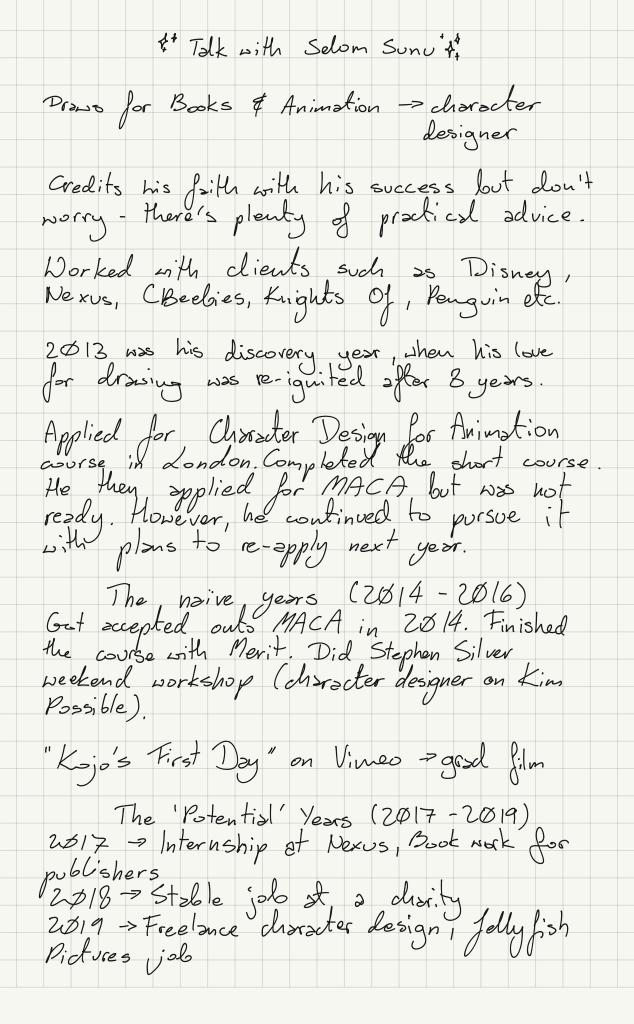 Talk with Selom Sunu
Draws for Books & Animation → character
designer
Credits his faith with his success but don't
worry - there's plenty of practical advice.
Worked with clients such as Disney,
Nexus, CBeebies, Knights Of, Penguin etc.
2013 was his discovery year, when his love
for drawing was re-ignited after 8 years.
Applied for Character Design for Animation
course in London. Completed the short course.
He then applied for MACA but was not
ready. However, he continued to pursue it
with plans to re-apply next year.
The naive years (2014 - 2016)
Got accepted onto MACA in 2014. Finished
the course with Merit. Did Stephen Silver
weekend workshop (character designer on Kim
Possible).
"Kojo's First Day" on Vimeo → grad film
The 'Potential' Years (2017 - 2019)
2017 → Internship at Nexus, Book work for
publishers
2018 → Stable job at a charity
2019 → Freelance character design, Jellyfish
Pictures job